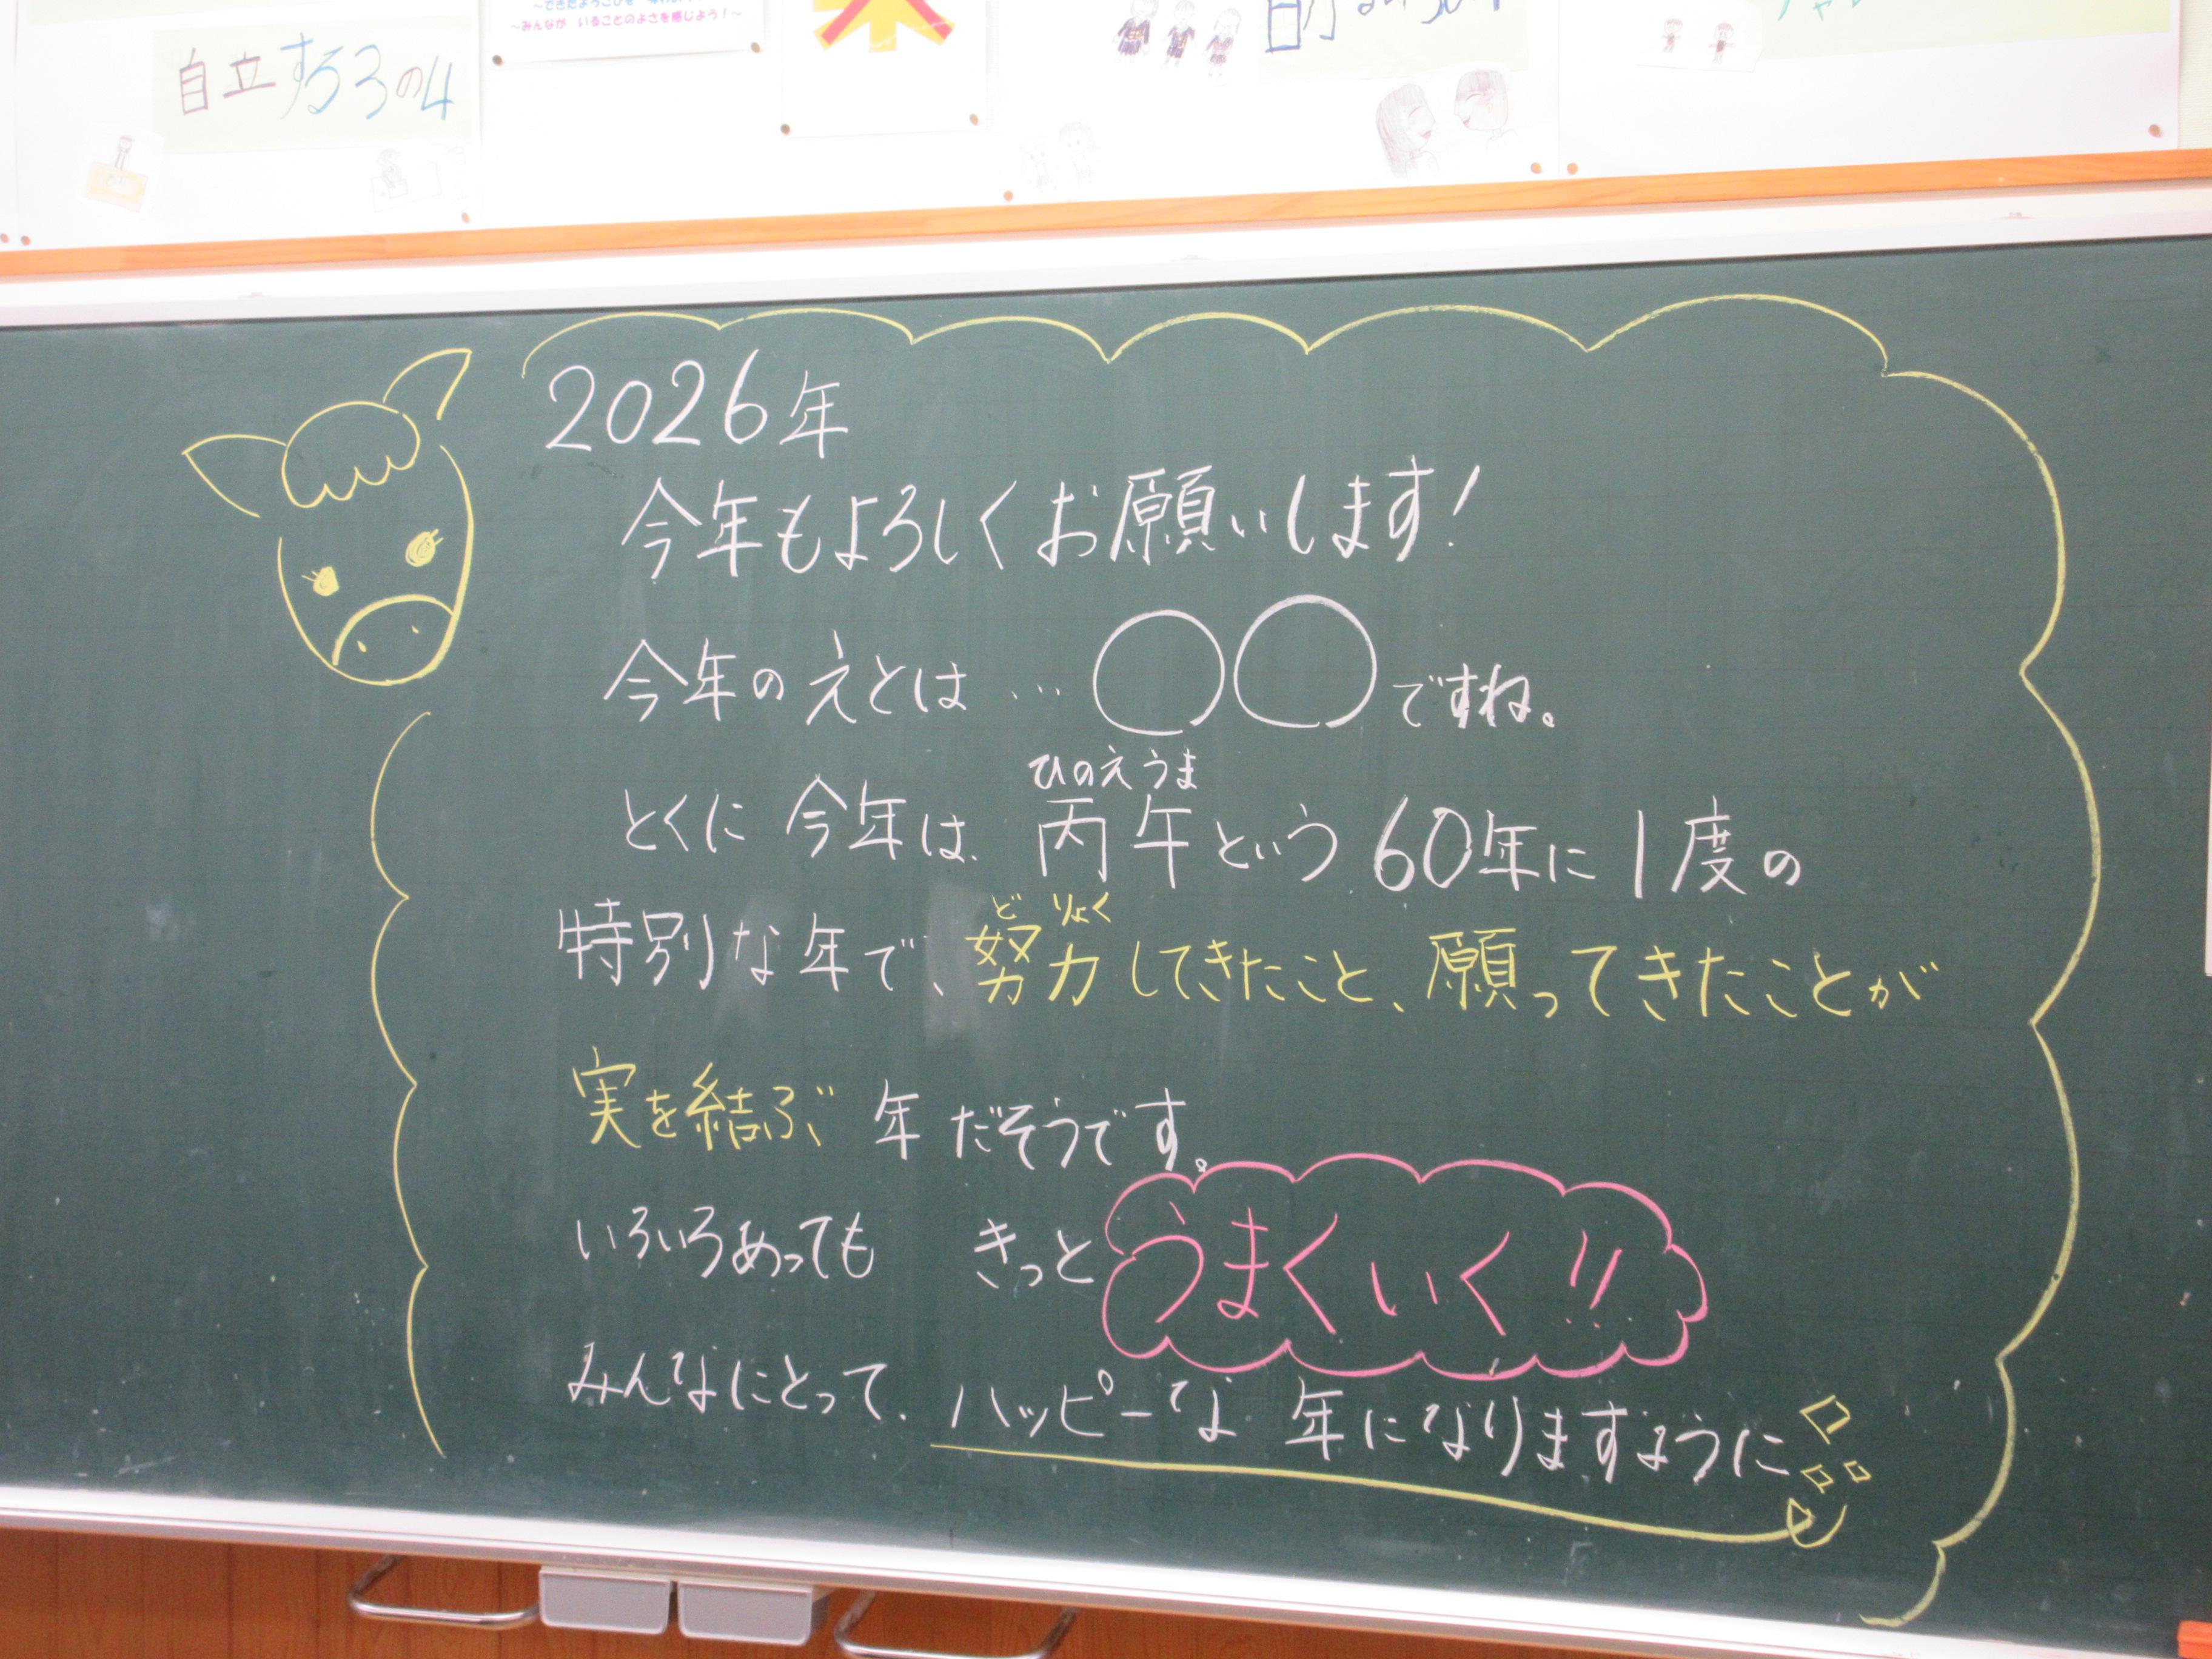 自立する3の4
～みんなが いることのよさを感じよう！～
2026年
今年もよろしくお願いします！
今年のえとは…○○ですね。
ひのえうま
とくに今年は、丙午という60年に1度の
どりょく
特別な年で、努力してきたこと、願ってきたことが
実を結ぶ年だそうです。
いろいろあっても きっとうまくいく!!
みんなにとって、ハッピーな年になりますように